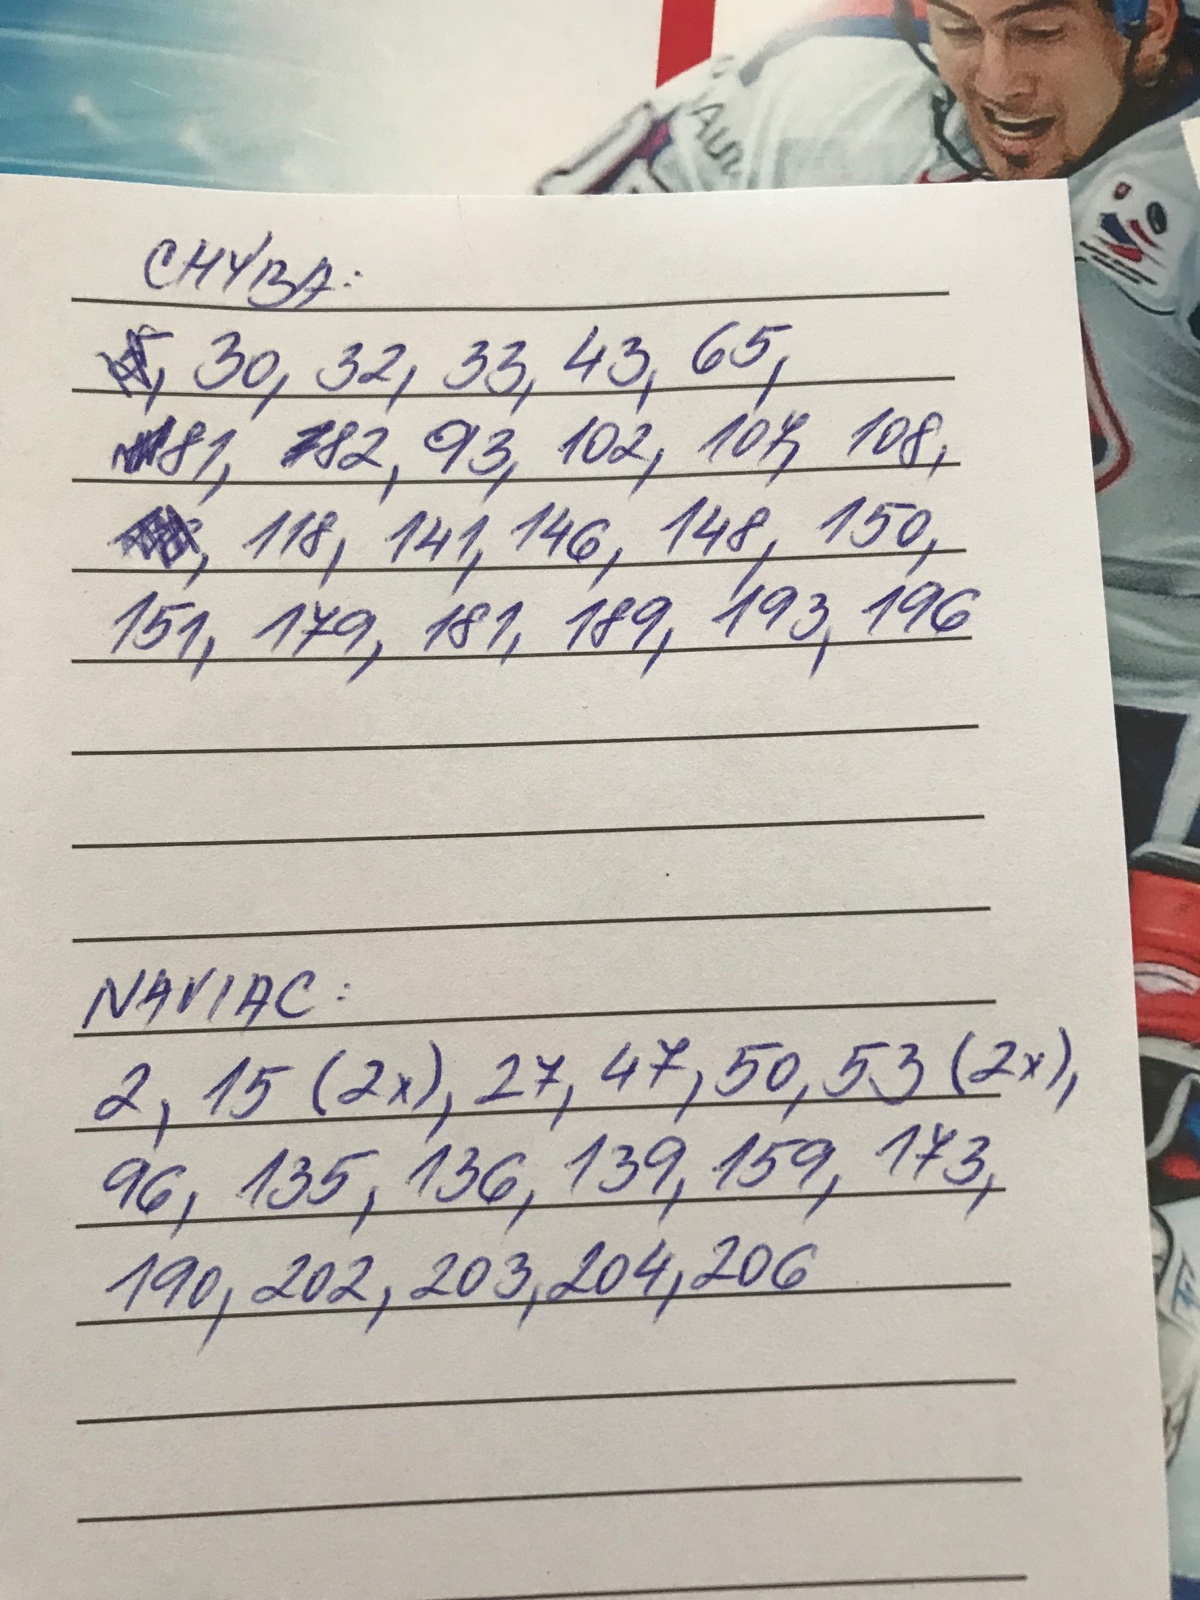 AUR
CHYBA:
, 30, 32, 33, 43, 65,
81, 82, 93, 102, 107, 108,
, 118, 141, 146, 148, 150,
151, 179, 181, 189, 193, 196
NAVIAC:
2, 15 (2x), 27, 47, 50, 53 (2x),
96, 135, 136, 139, 159, 173,
190, 202, 203, 204, 206